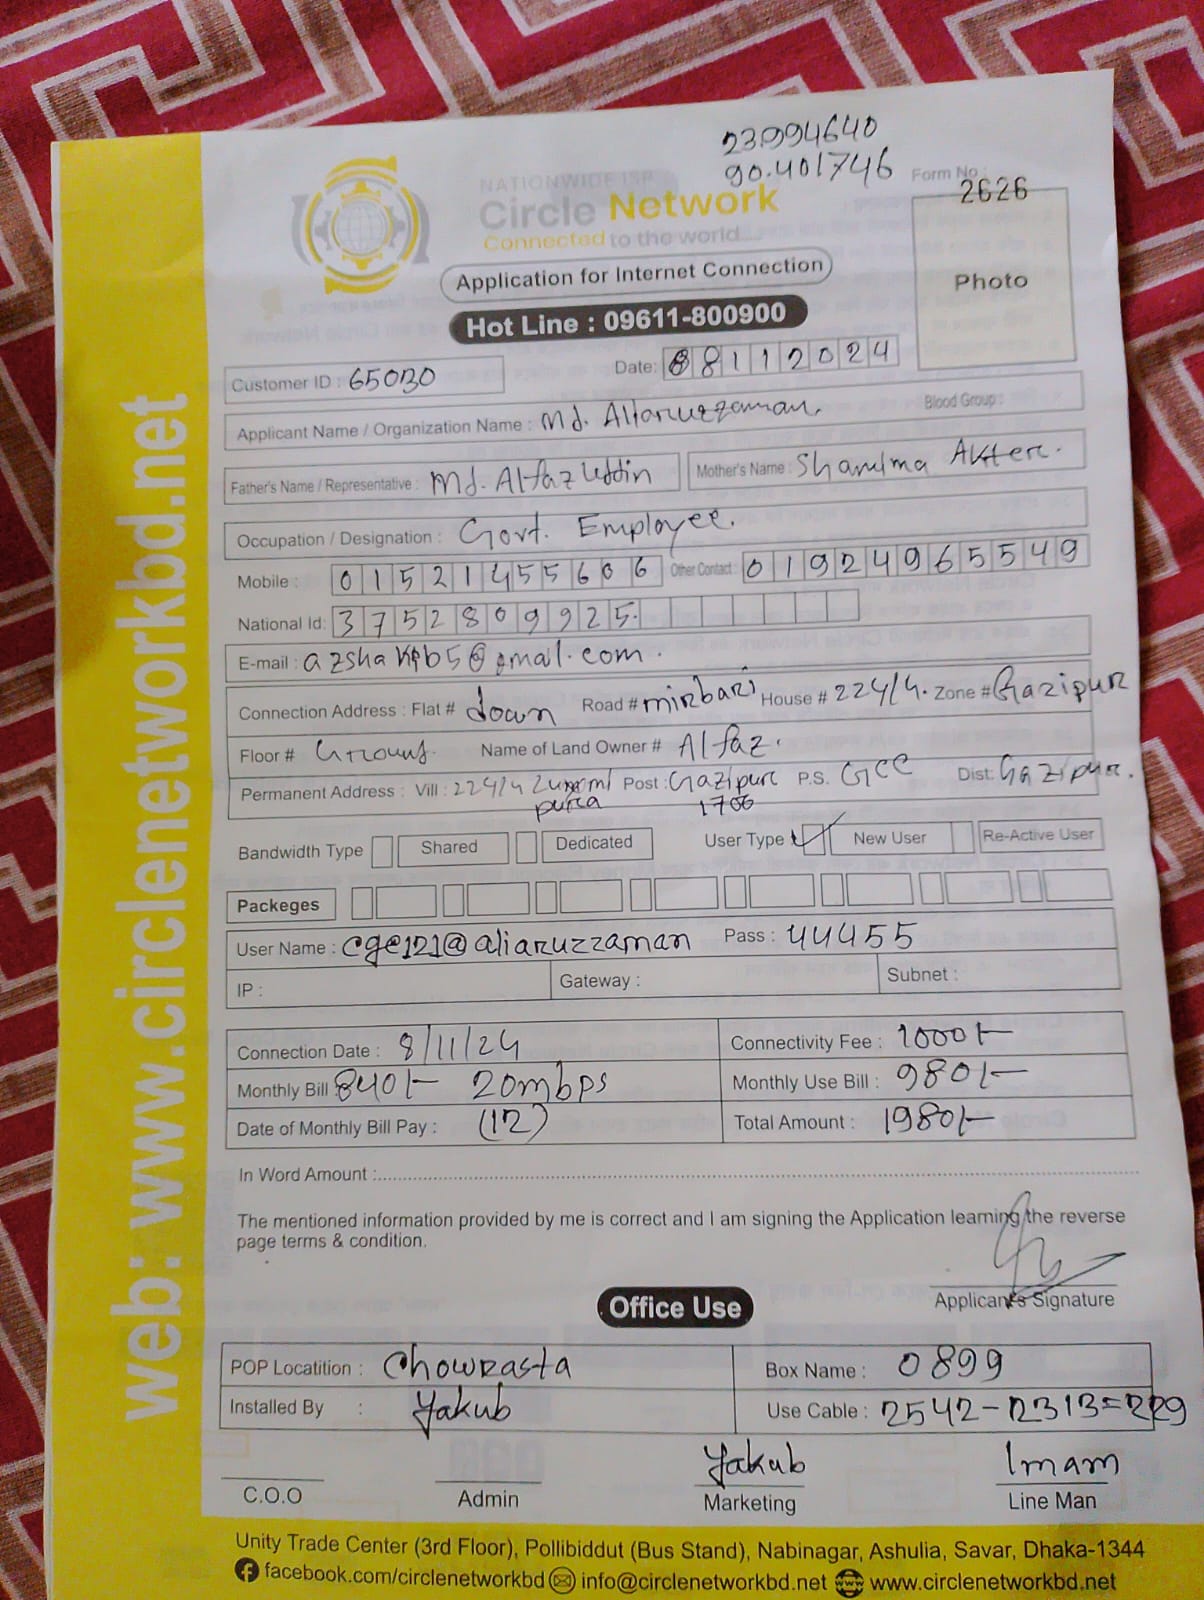 23.994640
90.401746
NATIONWIDE ISP
Circle Network
Connected to the world....
Form No :
2626
Photo
Application for Internet Connection
Hot Line : 09611-800900
Customer ID : 65030 Date: 08112024
Applicant Name / Organization Name : Md. Aliaruzzaman. Blood Group :
Father's Name / Representative : Md. Alfaz Uddin Mother's Name : Shamima Akter.
Occupation / Designation : Govt. Employee.
Mobile : 01521455606 Other Contact : 01924965549
National Id: 3752809925.
E-mail : @gmail.com.
Connection Address : Flat # down Road # mirbari House # 224/4. Zone # Gazipur
Floor # Ground. Name of Land Owner # Alfaz.
Permanent Address : Vill : 224/4 pura Post : Gazipur 1706 P.S. GCC Dist: Gazipur.
Bandwidth Type Shared Dedicated User Type New User Re-Active User
Packeges
User Name : cge121@aliaruzzaman Pass : 44455
IP : Gateway : Subnet :
Connection Date : 8/11/24 Connectivity Fee : 1000/-
Monthly Bill : 840/- 20mbps Monthly Use Bill : 980/-
Date of Monthly Bill Pay : (12) Total Amount : 1980/-
In Word Amount :
The mentioned information provided by me is correct and I am signing the Application learning the reverse
page terms & condition.
Applicant's Signature
Office Use
POP Locatition : Chowrasta Box Name : 0899
Installed By : Yakub Use Cable : 2542-2313=229
Yakub Imam
C.O.O Admin Marketing Line Man
Unity Trade Center (3rd Floor), Pollibiddut (Bus Stand), Nabinagar, Ashulia, Savar, Dhaka-1344
facebook.com/circlenetworkbd info@circlenetworkbd.net www.circlenetworkbd.net
web: www.circlenetworkbd.net